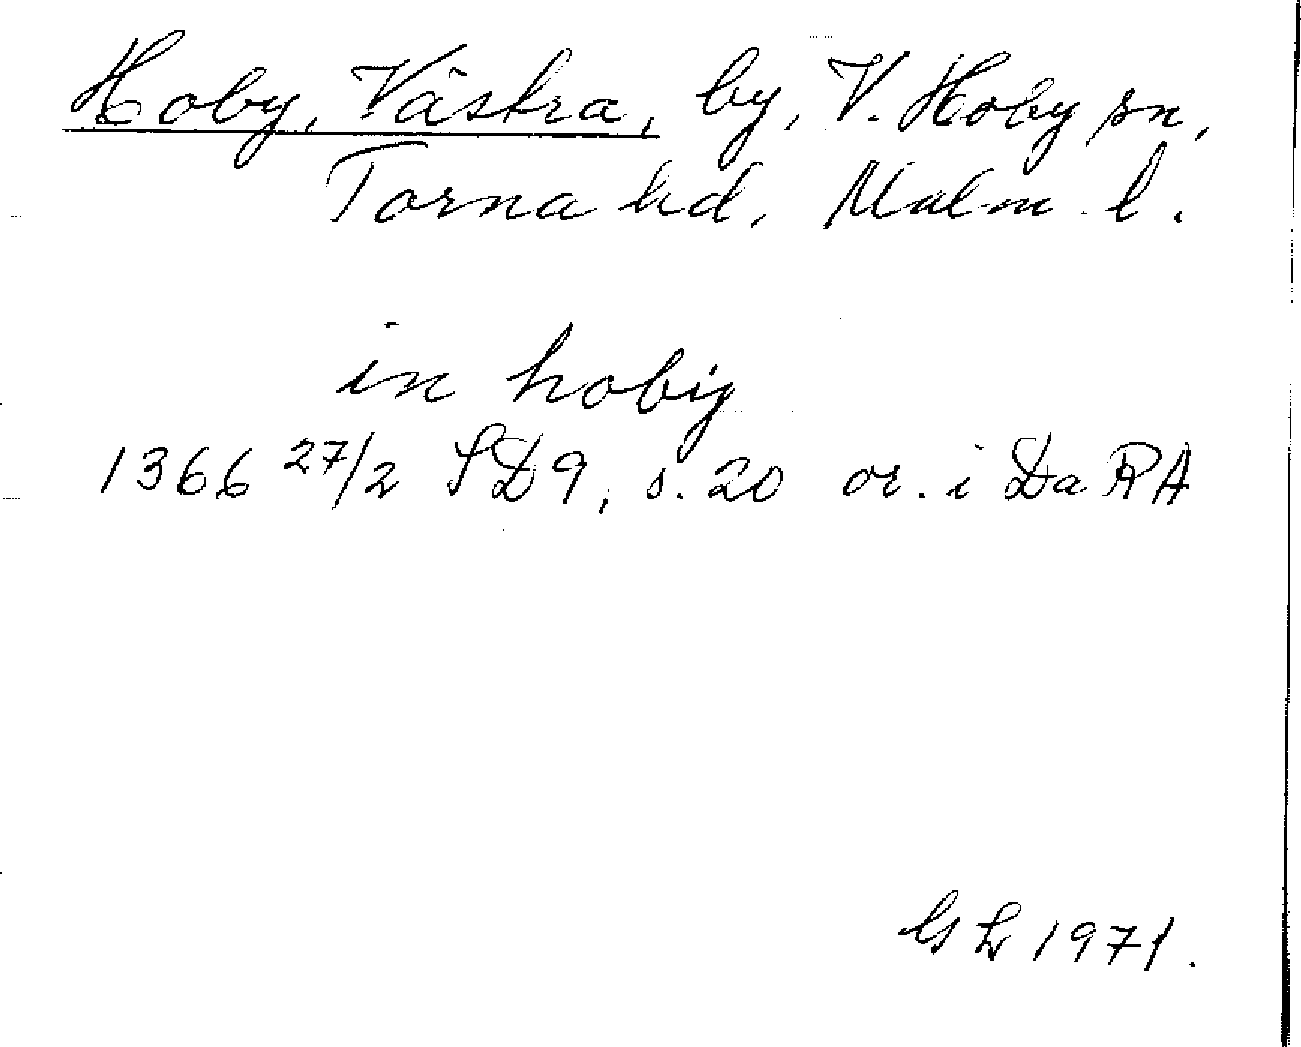 Hoby, Västra, by, V. Hoby sn,
Torna hd, Malm. l.
in hobig
1366 27/2 SD 9, s. 20 or. i Da RA
GL 1971.